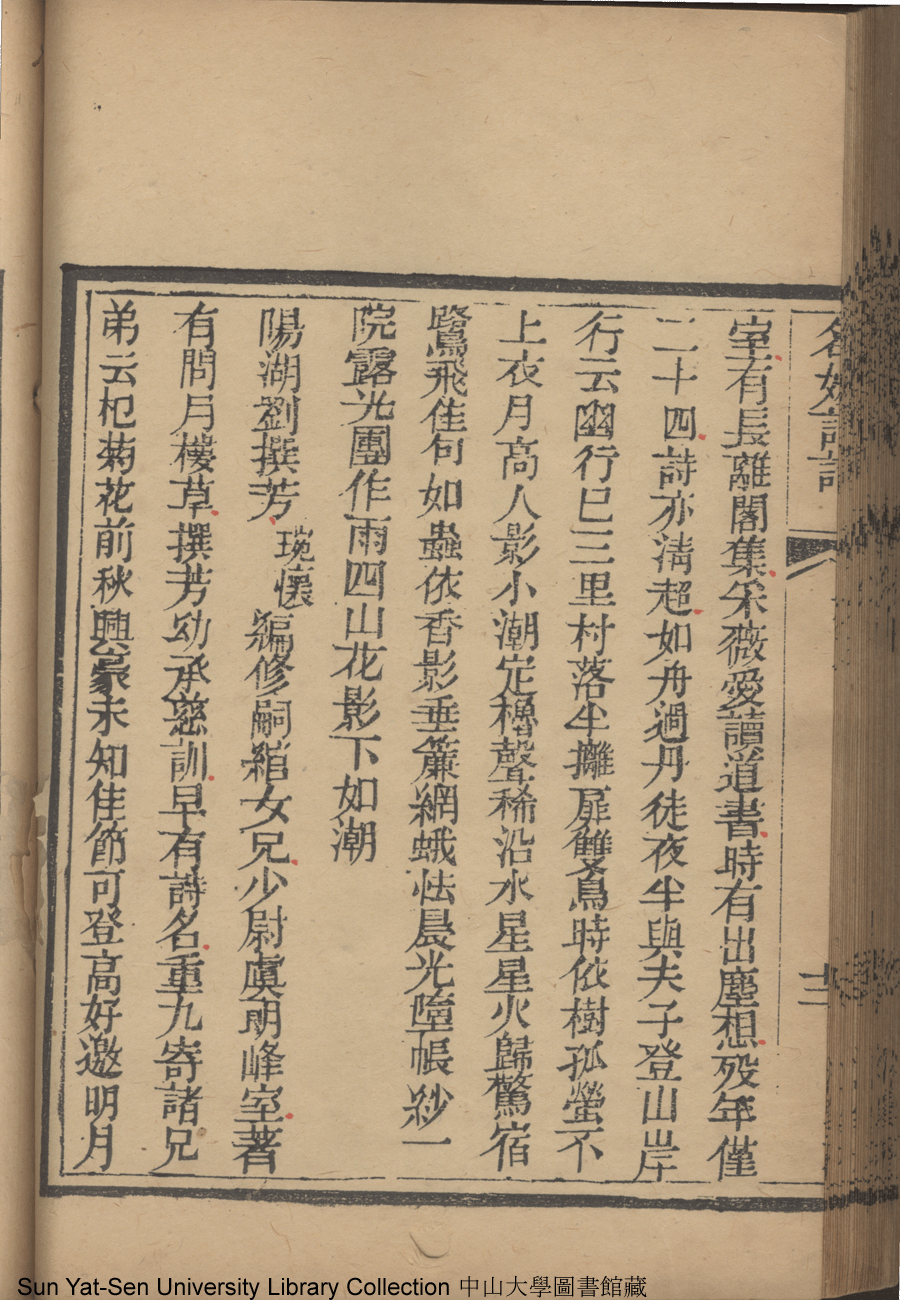 名媛詩話
十二
室有長離閣集采薇愛讀道書時有出塵想歿年僅
二十四詩亦清超如舟過丹徒夜半與夫子登山岸
行云幽行巳三里村落半攡扉雙鳥時依樹孤螢不
上衣月高人影小潮定櫓聲稀沿水星星火歸驚宿
鷺飛佳句如蟲依香影垂簾網蛾怯晨光墮帳紗一
院露光團作雨四山花影下如潮
陽湖劉撰芳琬懷編修嗣綰女兄少尉虞朗峰室著
有問月樓草撰芳幼承慈訓早有詩名重九寄諸兄
弟云杞菊花前秋興豪未知佳節可登高好邀明月
Sun Yat-Sen University Library Collection 中山大學圖書館藏